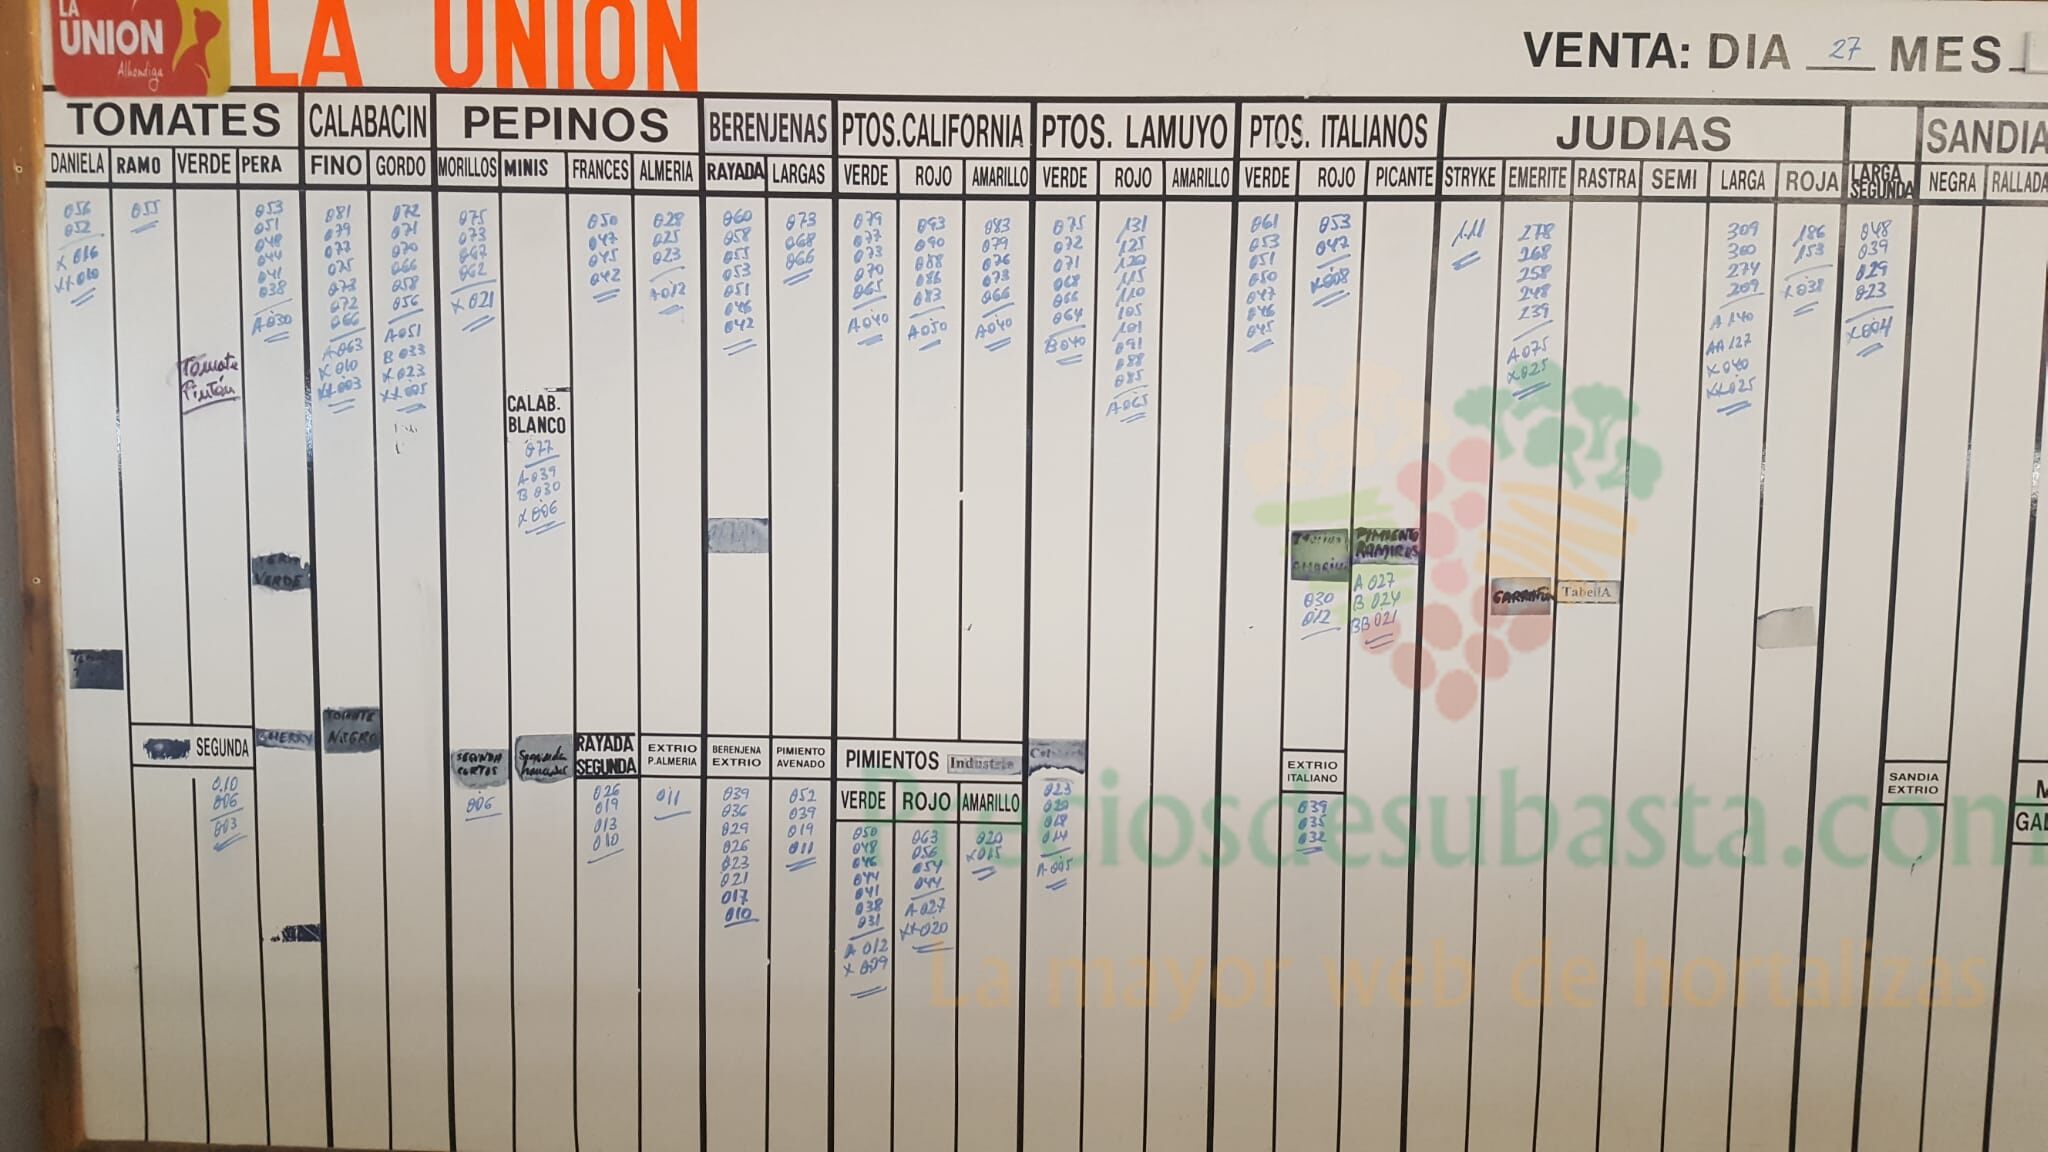 LA
UNION
Alhondiga
LA UNION
VENTA: DIA 27 MES
TOMATES CALABACIN PEPINOS BERENJENAS PTOS.CALIFORNIA PTOS. LAMUYO PTOS. ITALIANOS JUDIAS SANDIA
DANIELA RAMO VERDE PERA FINO GORDO MORILLOS MINIS FRANCES ALMERIA RAYADA LARGAS VERDE ROJO AMARILLO VERDE ROJO AMARILLO VERDE ROJO PICANTE STRYKE EMERITE RASTRA SEMI LARGA ROJA LARGA SEGUNDA NEGRA RALLADA
056
052
X 016
XX 010
055
Tomate
Pintón
053
051
048
044
041
038
A 030
081
079
077
075
073
072
066
A 063
X 010
XX 003
072
071
070
066
058
056
A 051
B 033
X 023
XX 005
075
073
067
062
X 021
CALAB.
BLANCO
077
A 039
B 030
X 006
050
047
045
042
028
025
023
A 012
060
058
055
053
051
046
042
073
068
066
079
077
073
070
065
A 040
093
090
088
086
083
A 050
083
079
076
073
066
A 040
075
072
071
068
066
064
B 040
131
125
120
115
110
105
101
091
088
085
A 065
061
053
051
050
047
046
045
053
047
X 008
030
012
PIMIENTO
RAMIROS
A 027
B 024
BB 021
111
278
268
258
248
239
A 075
X 025
GARRAFON
TabellA
309
300
274
209
A 140
AA 127
X 040
XX 025
186
153
X 038
048
039
029
023
X 004
VERDE
SEGUNDA
010
006
003
CHERRY
TOMATE
NEGRO
SEGUNDA
CORTOS
006
Segunda
RAYADA
SEGUNDA
026
019
013
010
EXTRIO
P.ALMERIA
011
BERENJENA
EXTRIO
039
036
029
026
023
021
017
010
PIMIENTO
AVENADO
052
039
019
011
PIMIENTOS Industria
VERDE ROJO AMARILLO
050
048
046
044
041
038
031
A 012
X 009
063
056
054
044
A 027
XX 020
020
X 015
023
020
018
014
A 005
EXTRIO
ITALIANO
039
035
032
SANDIA
EXTRIO
M
GAL
Preciosdesubasta.com
La mayor web de hortalizas